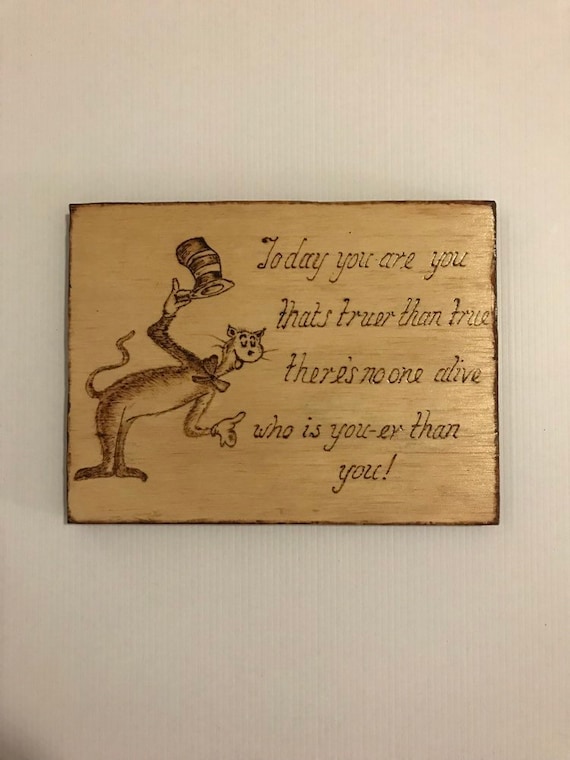 Today you are you
thats truer than true
there's no one alive
who is you-er than
you!